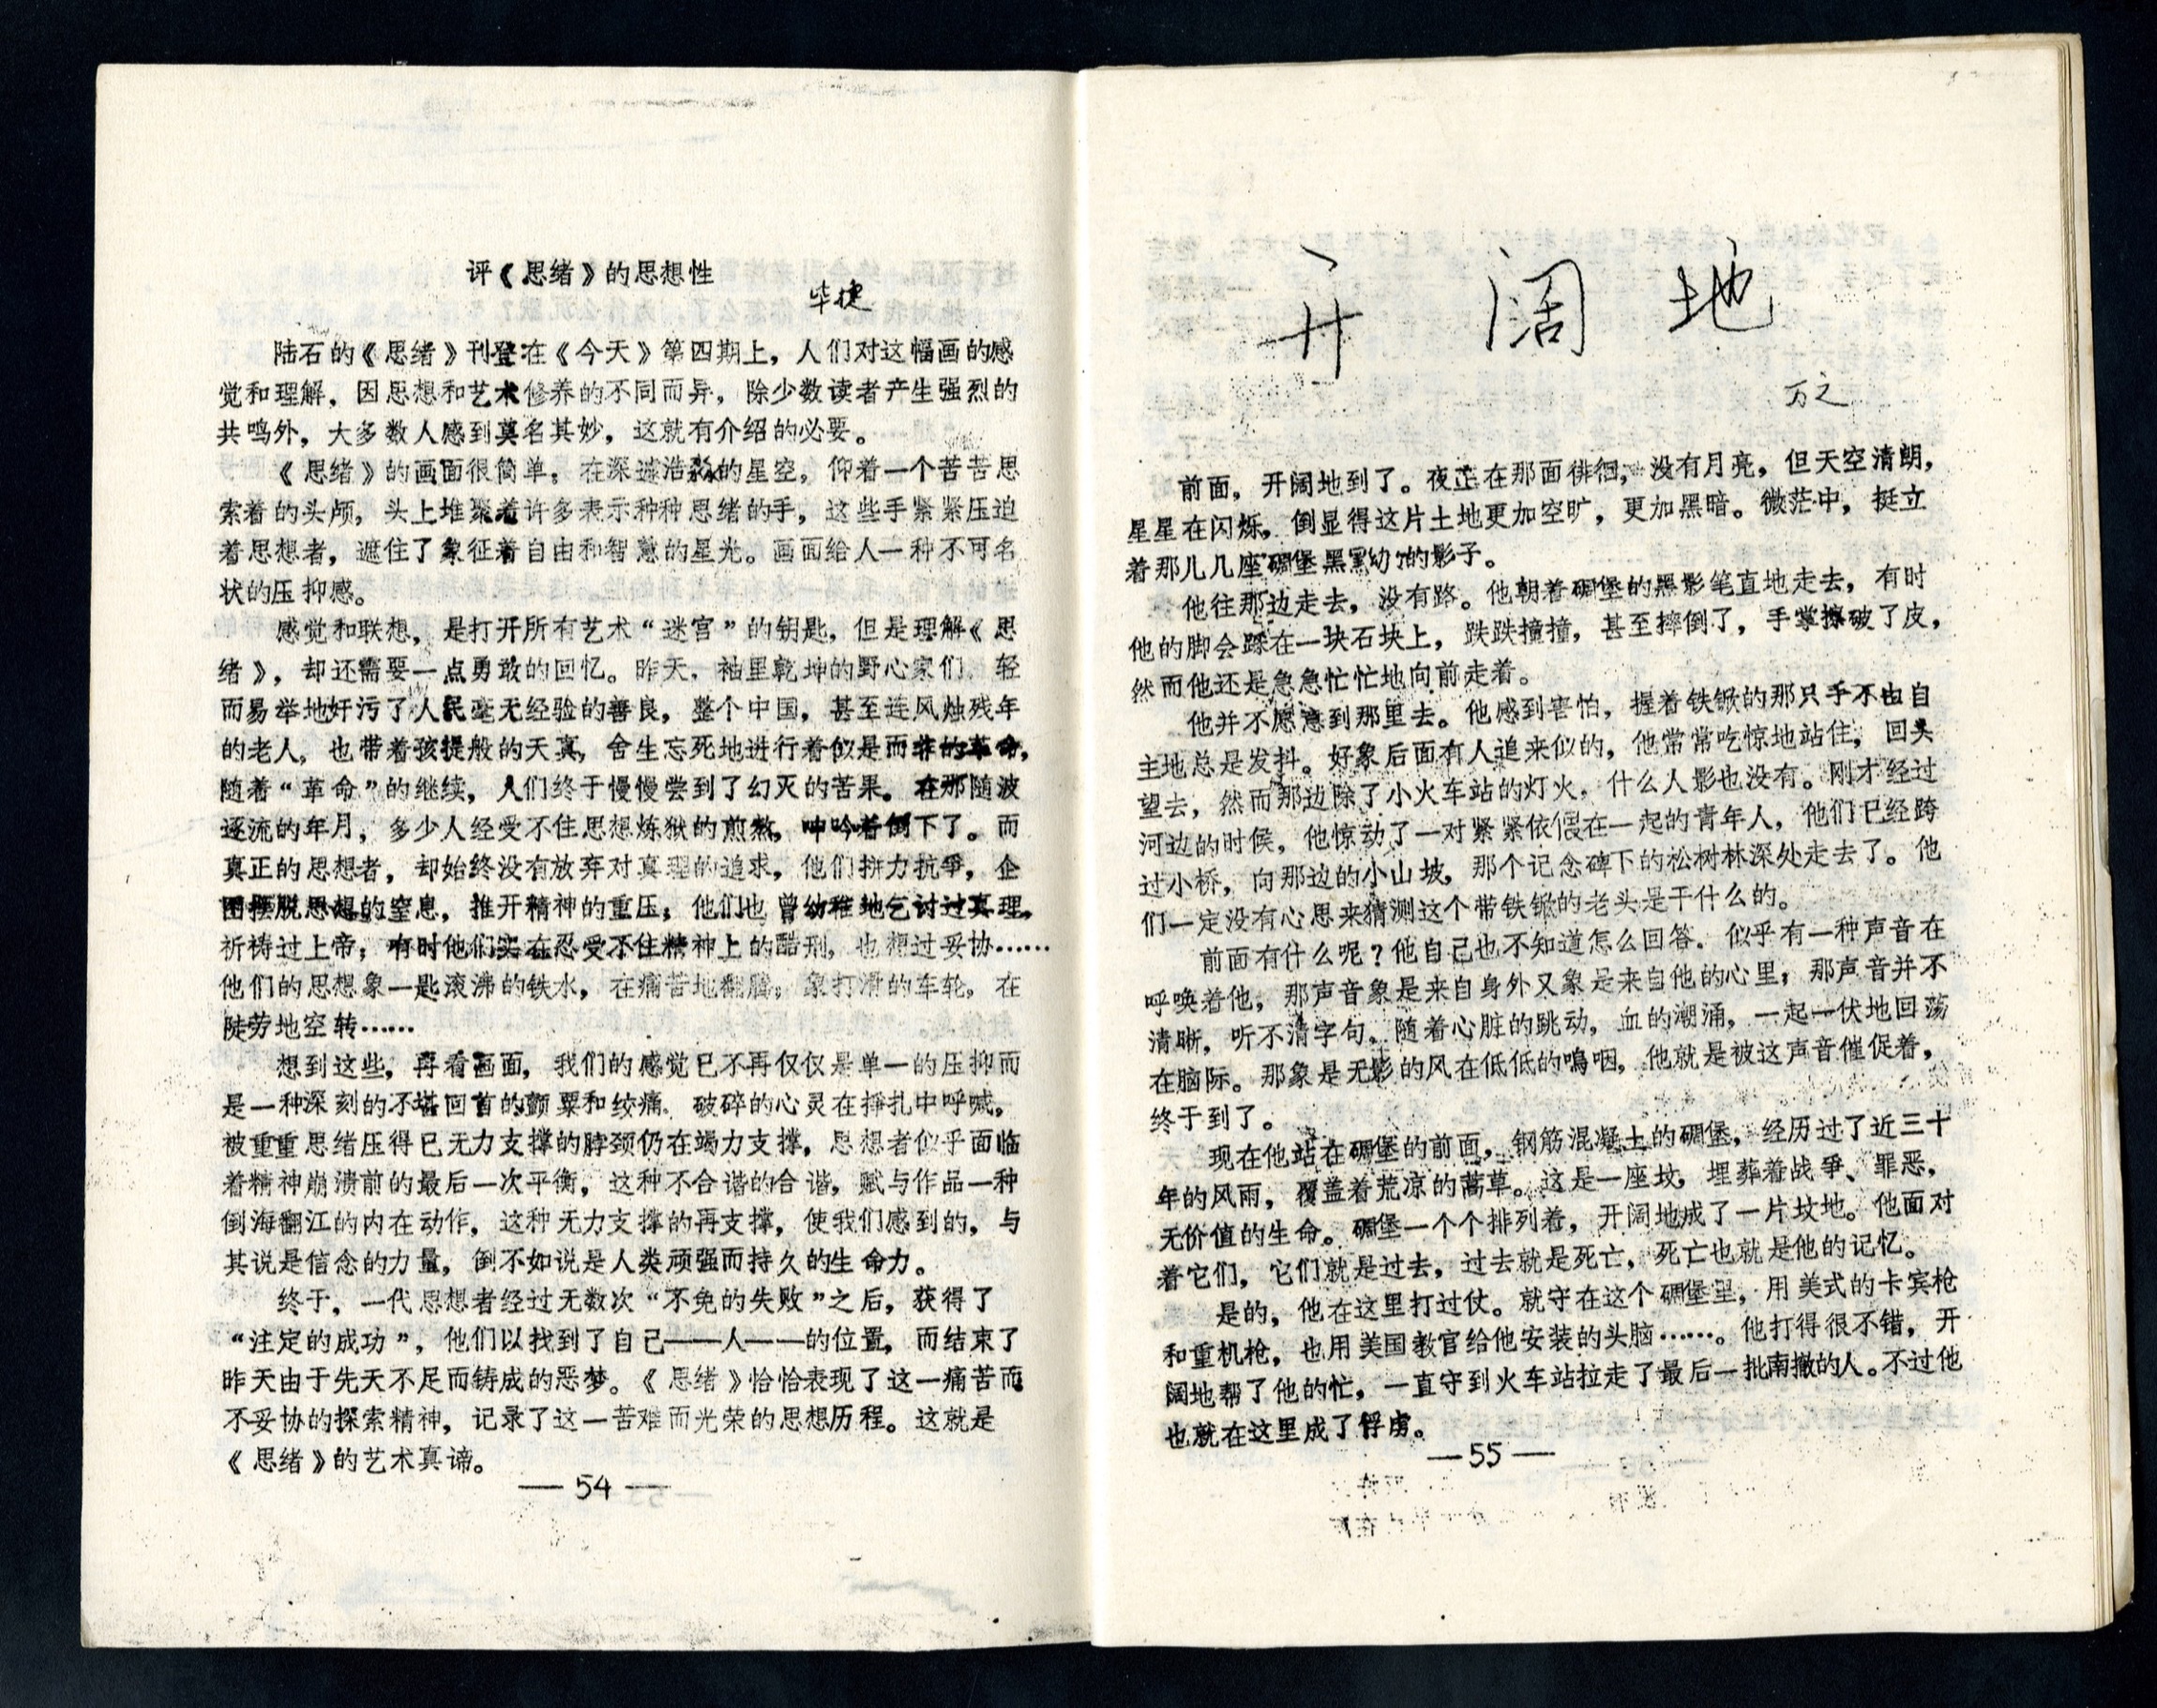 评《思绪》的思想性
毕捷
陆石的《思绪》刊登在《今天》第四期上，人们对这幅画的感
觉和理解，因思想和艺术修养的不同而异，除少数读者产生强烈的
共鸣外，大多数人感到莫名其妙，这就有介绍的必要。
《思绪》的画面很简单：在深邃浩淼的星空，仰着一个苦苦思
索着的头颅，头上堆聚着许多表示种种思绪的手，这些手紧紧压迫
着思想者，遮住了象征着自由和智慧的星光。画面给人一种不可名
状的压抑感。
感觉和联想，是打开所有艺术“迷宫”的钥匙，但是理解《思
绪》，却还需要一点勇敢的回忆。昨天，袖里乾坤的野心家们，轻
而易举地奸污了人民毫无经验的善良，整个中国，甚至连风烛残年
的老人，也带着孩提般的天真，舍生忘死地进行着似是而非的革命，
随着“革命”的继续，人们终于慢慢尝到了幻灭的苦果。在那随波
逐流的年月，多少人经受不住思想炼狱的煎熬，呻吟着倒下了。而
真正的思想者，却始终没有放弃对真理的追求，他们拼力抗争，企
图摆脱思想的窒息，推开精神的重压；他们也曾幼稚地乞讨过真理，
祈祷过上帝；有时他们实在忍受不住精神上的酷刑，也想过妥协……
他们的思想象一匙滚沸的铁水，在痛苦地翻腾；象打滑的车轮，在
陡劳地空转……
想到这些，再看画面，我们的感觉已不再仅仅是单一的压抑而
是一种深刻的不堪回首的颤粟和绞痛。破碎的心灵在挣扎中呼喊，
被重重思绪压得已无力支撑的脖颈仍在竭力支撑，思想者似乎面临
着精神崩溃前的最后一次平衡，这种不合谐的合谐，赋与作品一种
倒海翻江的内在动作，这种无力支撑的再支撑，使我们感到的，与
其说是信念的力量，倒不如说是人类顽强而持久的生命力。
终于，一代思想者经过无数次“不免的失败”之后，获得了
“注定的成功”，他们以找到了自己——人——的位置，而结束了
昨天由于先天不足而铸成的恶梦。《思绪》恰恰表现了这一痛苦而
不妥协的探索精神，记录了这一苦难而光荣的思想历程。这就是
《思绪》的艺术真谛。
—54—
开阔地
万之
前面，开阔地到了。夜正在那面徘徊，没有月亮，但天空清朗，
星星在闪烁，倒显得这片土地更加空旷，更加黑暗。微茫中，挺立
着那儿几座碉堡黑黝黝的影子。
他往那边走去，没有路。他朝着碉堡的黑影笔直地走去，有时
他的脚会踩在一块石块上，跌跌撞撞，甚至摔倒了，手掌擦破了皮，
然而他还是急急忙忙地向前走着。
他并不愿意到那里去。他感到害怕，握着铁锨的那只手不由自
主地总是发抖。好象后面有人追来似的，他常常吃惊地站住，回头
望去，然而那边除了小火车站的灯火，什么人影也没有。刚才经过
河边的时候，他惊动了一对紧紧依偎在一起的青年人，他们已经跨
过小桥，向那边的小山坡，那个记念碑下的松树林深处走去了。他
们一定没有心思来猜测这个带铁锨的老头是干什么的。
前面有什么呢？他自己也不知道怎么回答。似乎有一种声音在
呼唤着他，那声音象是来自身外又象是来自他的心里；那声音并不
清晰，听不清字句，随着心脏的跳动，血的潮涌，一起一伏地回荡
在脑际。那象是无影的风在低低的鸣咽，他就是被这声音催促着，
终于到了。
现在他站在碉堡的前面，钢筋混凝土的碉堡，经历过了近三十
年的风雨，覆盖着荒凉的蒿草。这是一座坟，埋葬着战争、罪恶，
无价值的生命。碉堡一个个排列着，开阔地成了一片坟地。他面对
着它们，它们就是过去，过去就是死亡，死亡也就是他的记忆。
是的，他在这里打过仗。就守在这个碉堡里，用美式的卡宾枪
和重机枪，也用美国教官给他安装的头脑……。他打得很不错，开
阔地帮了他的忙，一直守到火车站拉走了最后一批南撤的人。不过他
也就在这里成了俘虏。
—55—